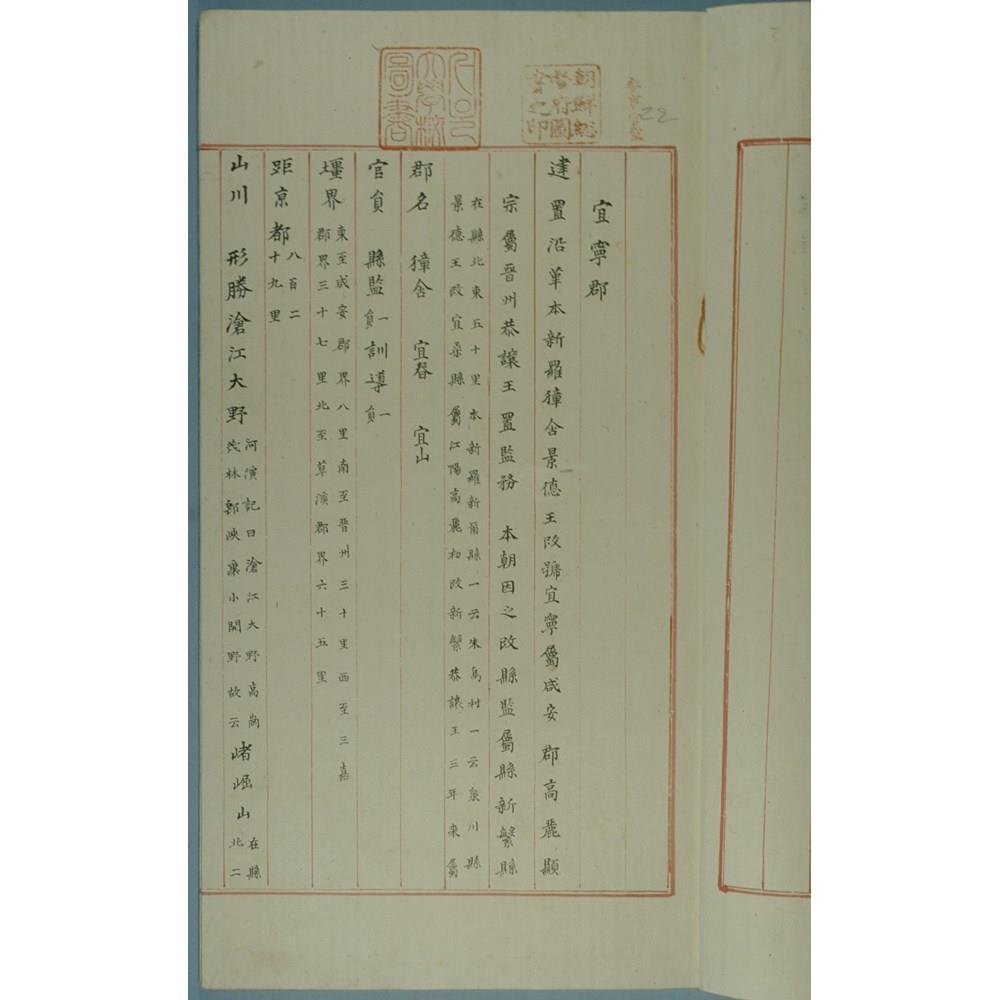 宜寧郡
建置沿革本新羅獐含景德王改號宜寧屬咸安郡高麗顯
宗屬晉州恭讓王置監務 本朝因之改縣監屬縣新繁縣
在縣北東五十里本新羅新尒縣一云朱烏村一云泉川縣
景德王改宜桑縣屬江陽高麗初改新繁恭讓王三年來屬
郡名 獐含 宜春 宜山
官員 縣監一員訓導一員
壃界東至咸安郡界八里南至晉州三十里西至三嘉
郡界三十七里北至草溪郡界六十五里
距京都八百二
十九里
山川 形勝滄江大野河演記曰滄江大野高崗
茂林鄭映裏小開野故云䃴崛山在縣
北二
朝鮮總督府圖書之印
圖書
22